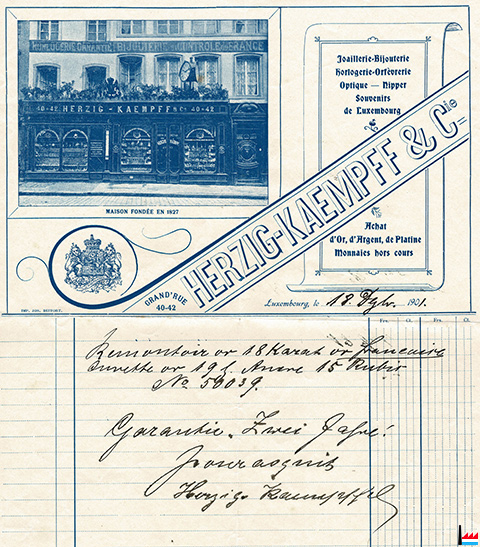 HORLOGERIE GARANTIE BIJOUTERIE CONTROLE de FRANCE
40-42 HERZIG-KAEMPFF & Cie 40-42
MAISON FONDÉE EN 1827
Joaillerie-Bijouterie
Horlogerie-Orfèvrerie
Optique — Nipper
Souvenirs
de Luxembourg
HERZIG-KAEMPFF & Cie
Achat
d'Or, d'Argent, de Platine
Monnaies hors cours
GRAND'RUE
40-42
Luxembourg, le 13. 1901.
Frs. Ct. Frs. Ct.
Remontoir or 18 Karat or
Cuvette or 19 Ancre 15 Rubis
No 50039.
Garantie Zwei Jahre!
pour acquit
Herzig Kaempff